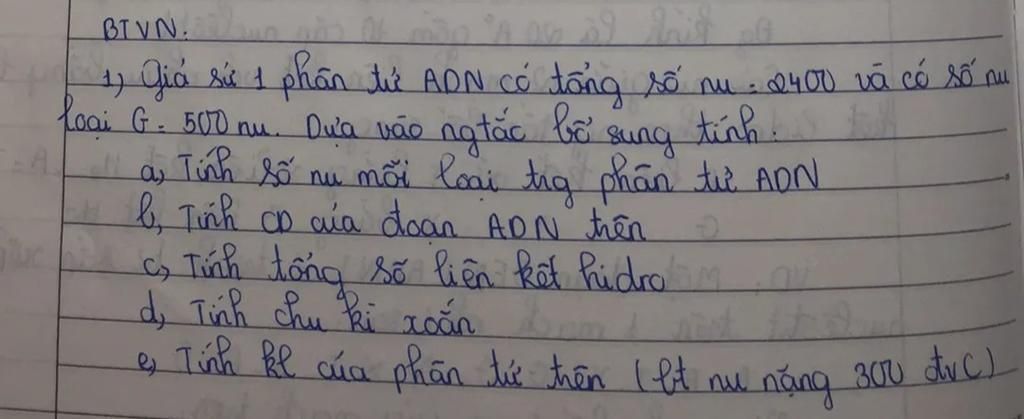 BTVN:
1) Giả sử 1 phân tử ADN có tổng số nu = 2400 và có số nu
loại G = 500 nu. Dựa vào ngtắc bổ sung tính:
a, Tính số nu mỗi loại trg phân tử ADN
b, Tính CD của đoạn ADN trên
c, Tính tổng số liên kết hidro
d, Tính chu kì xoắn
e, Tính kl của phân tử trên (bt nu nặng 300 đvC)